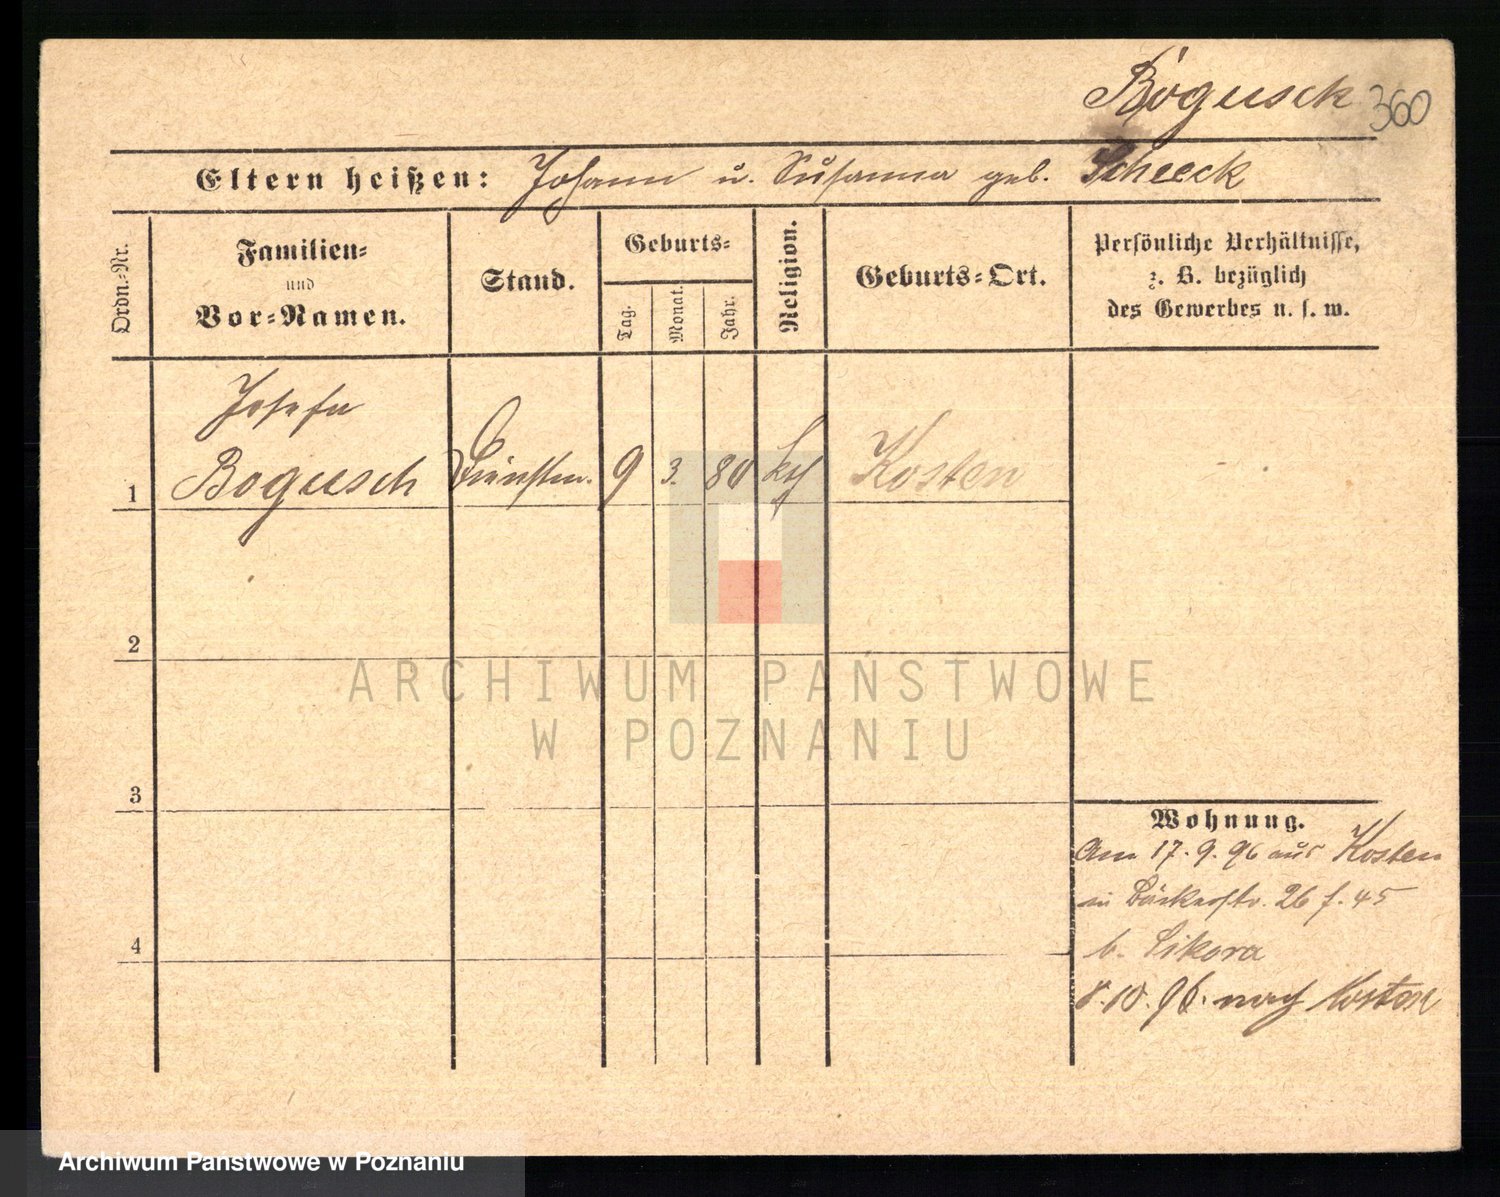 Bogusch 360
Eltern heißen: Johann u. Susanna geb. Scheeck
Ordn.-Nr.
Familien- und Vor-Namen.
Stand.
Geburts-
Tag.
Monat.
Jahr.
Religion.
Geburts-Ort.
Persönliche Verhältnisse,
z. B. bezüglich
des Gewerbes u. s. w.
Josefa
1 Bogusch Dienstm. 9 3. 80 kth Kosten
2
ARCHIWUM PAŃSTWOWE
W POZNANIU
3
Wohnung.
Am 17. 9. 96 aus Kosten
in Bäckerstr. 26 f. 45
4
b. Sikora
8. 10. 96. nach Kosten
Archiwum Państwowe w Poznaniu